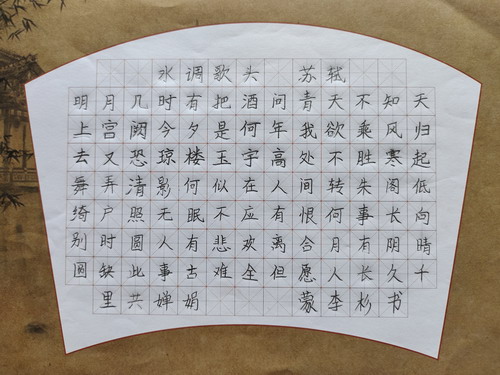 水调歌头 苏轼
明月几时有把酒问青天不知天
上宫阙今夕是何年我欲乘风归
去又恐琼楼玉宇高处不胜寒起
舞弄清影何似在人间转朱阁低
绮户照无眠不应有恨何事长向
别时圆人有悲欢离合月有阴晴
圆缺此事古难全但愿人长久千
里共婵娟 蒙李杉书